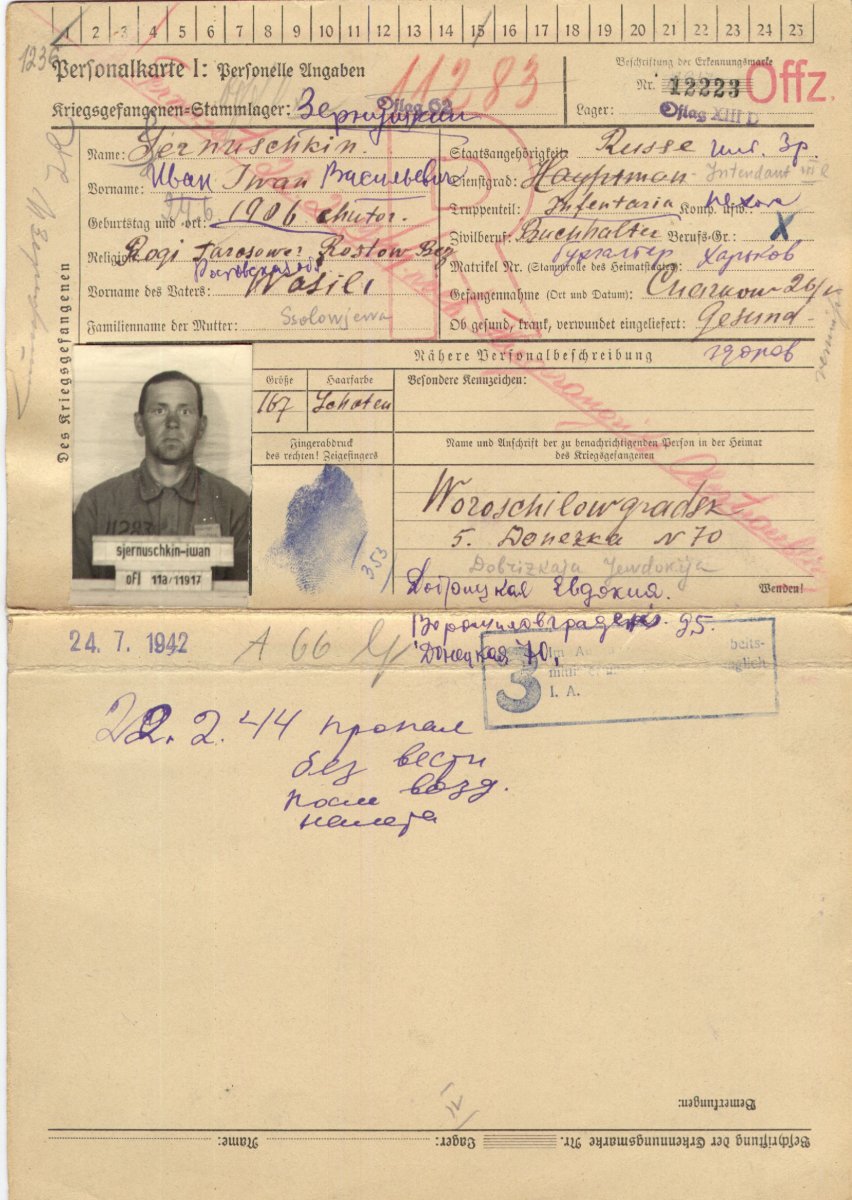 1 2 3 4 5 6 7 8 9 10 11 12 13 14 15 16 17 18 19 20 21 22 23 24 25
1236
Personalkarte I: Personelle Angaben
11283
Beschriftung der Erkennungsmarke
Nr. 12223 Offz.
Kriegsgefangenen-Stammlager: Oflag 62
Lager: Oflag XIII D
Des Kriegsgefangenen
Name: Jernuschkin.
Staatsangehörigkeit: Russe
Vorname: Иван Iwan Васильевич
Dienstgrad: Hauptman - Intendant
Truppenteil: Infentaria Komp. usw.: пехота
Geburtstag und -ort: 1906 chutor.
Zivilberuf: Buchhalter Berufs-Gr.: X
бухгалтер
Religion: Rogi Tarasower Rostow Bez
Ростовская обл
Matrikel Nr. (Stammrolle des Heimatstaates): Харьков
Vorname des Vaters: Wasili
Gefangennahme (Ort und Datum): Charkow 26/
Familienname der Mutter: Ssolowjewa
Ob gesund, krank, verwundet eingeliefert: Gesund
здоров
Nähere Personalbeschreibung
Größe Haarfarbe Besondere Kennzeichen:
167 Schaten
Fingerabdruck
des rechten! Zeigefingers
Name und Anschrift der zu benachrichtigenden Person in der Heimat
des Kriegsgefangenen
Woroschilowgradsk
5. Donezka N 70
Dobrizkaja Jewdokija
353
Добрицкая Евдокия.
Wenden!
11283
sjernuschkin-iwan
ofl 11a/11917
24. 7. 1942
A 66
Ворошиловград 95.
Донецкая 70,
3
Im
beits-
I. A.
22. 2. 44 пропал
без вести
после возд.
налета
IV
Bemerkungen:
Beschriftung der Erkennungsmarke Nr. Lager: Name: